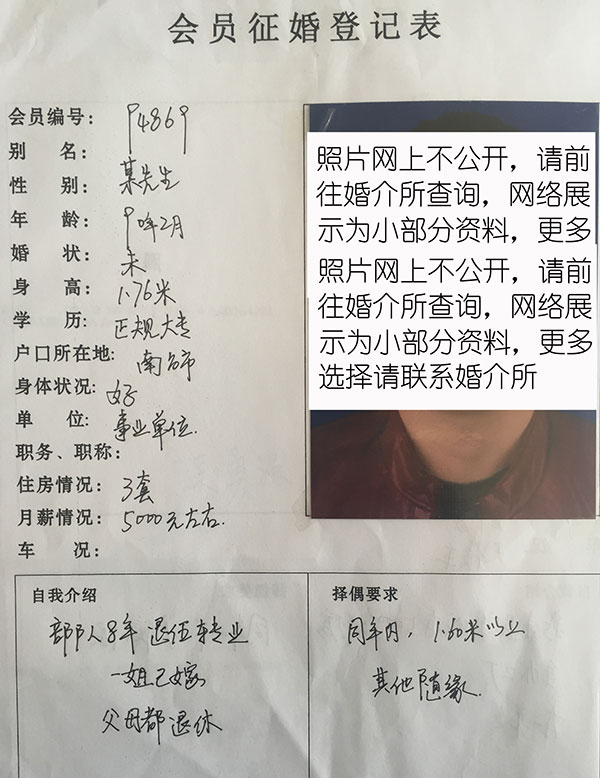 会员征婚登记表
会员编号: 94869
别 名: 某先生
性 别:
年 龄: 9年2月
婚 状: 未
身 高: 1.76米
学 历: 正规大专
户口所在地: 南昌市
身体状况: 好
单 位: 事业单位.
职务、职称:
住房情况: 3套
月薪情况: 5000元左右.
车 况:
照片网上不公开，请前
往婚介所查询，网络展
示为小部分资料，更多
照片网上不公开，请前
往婚介所查询，网络展
示为小部分资料，更多
选择请联系婚介所
自我介绍
部队8年 退伍转业
一姐已嫁
父母都退休
择偶要求
同年内，1.60米以上
其他随缘.